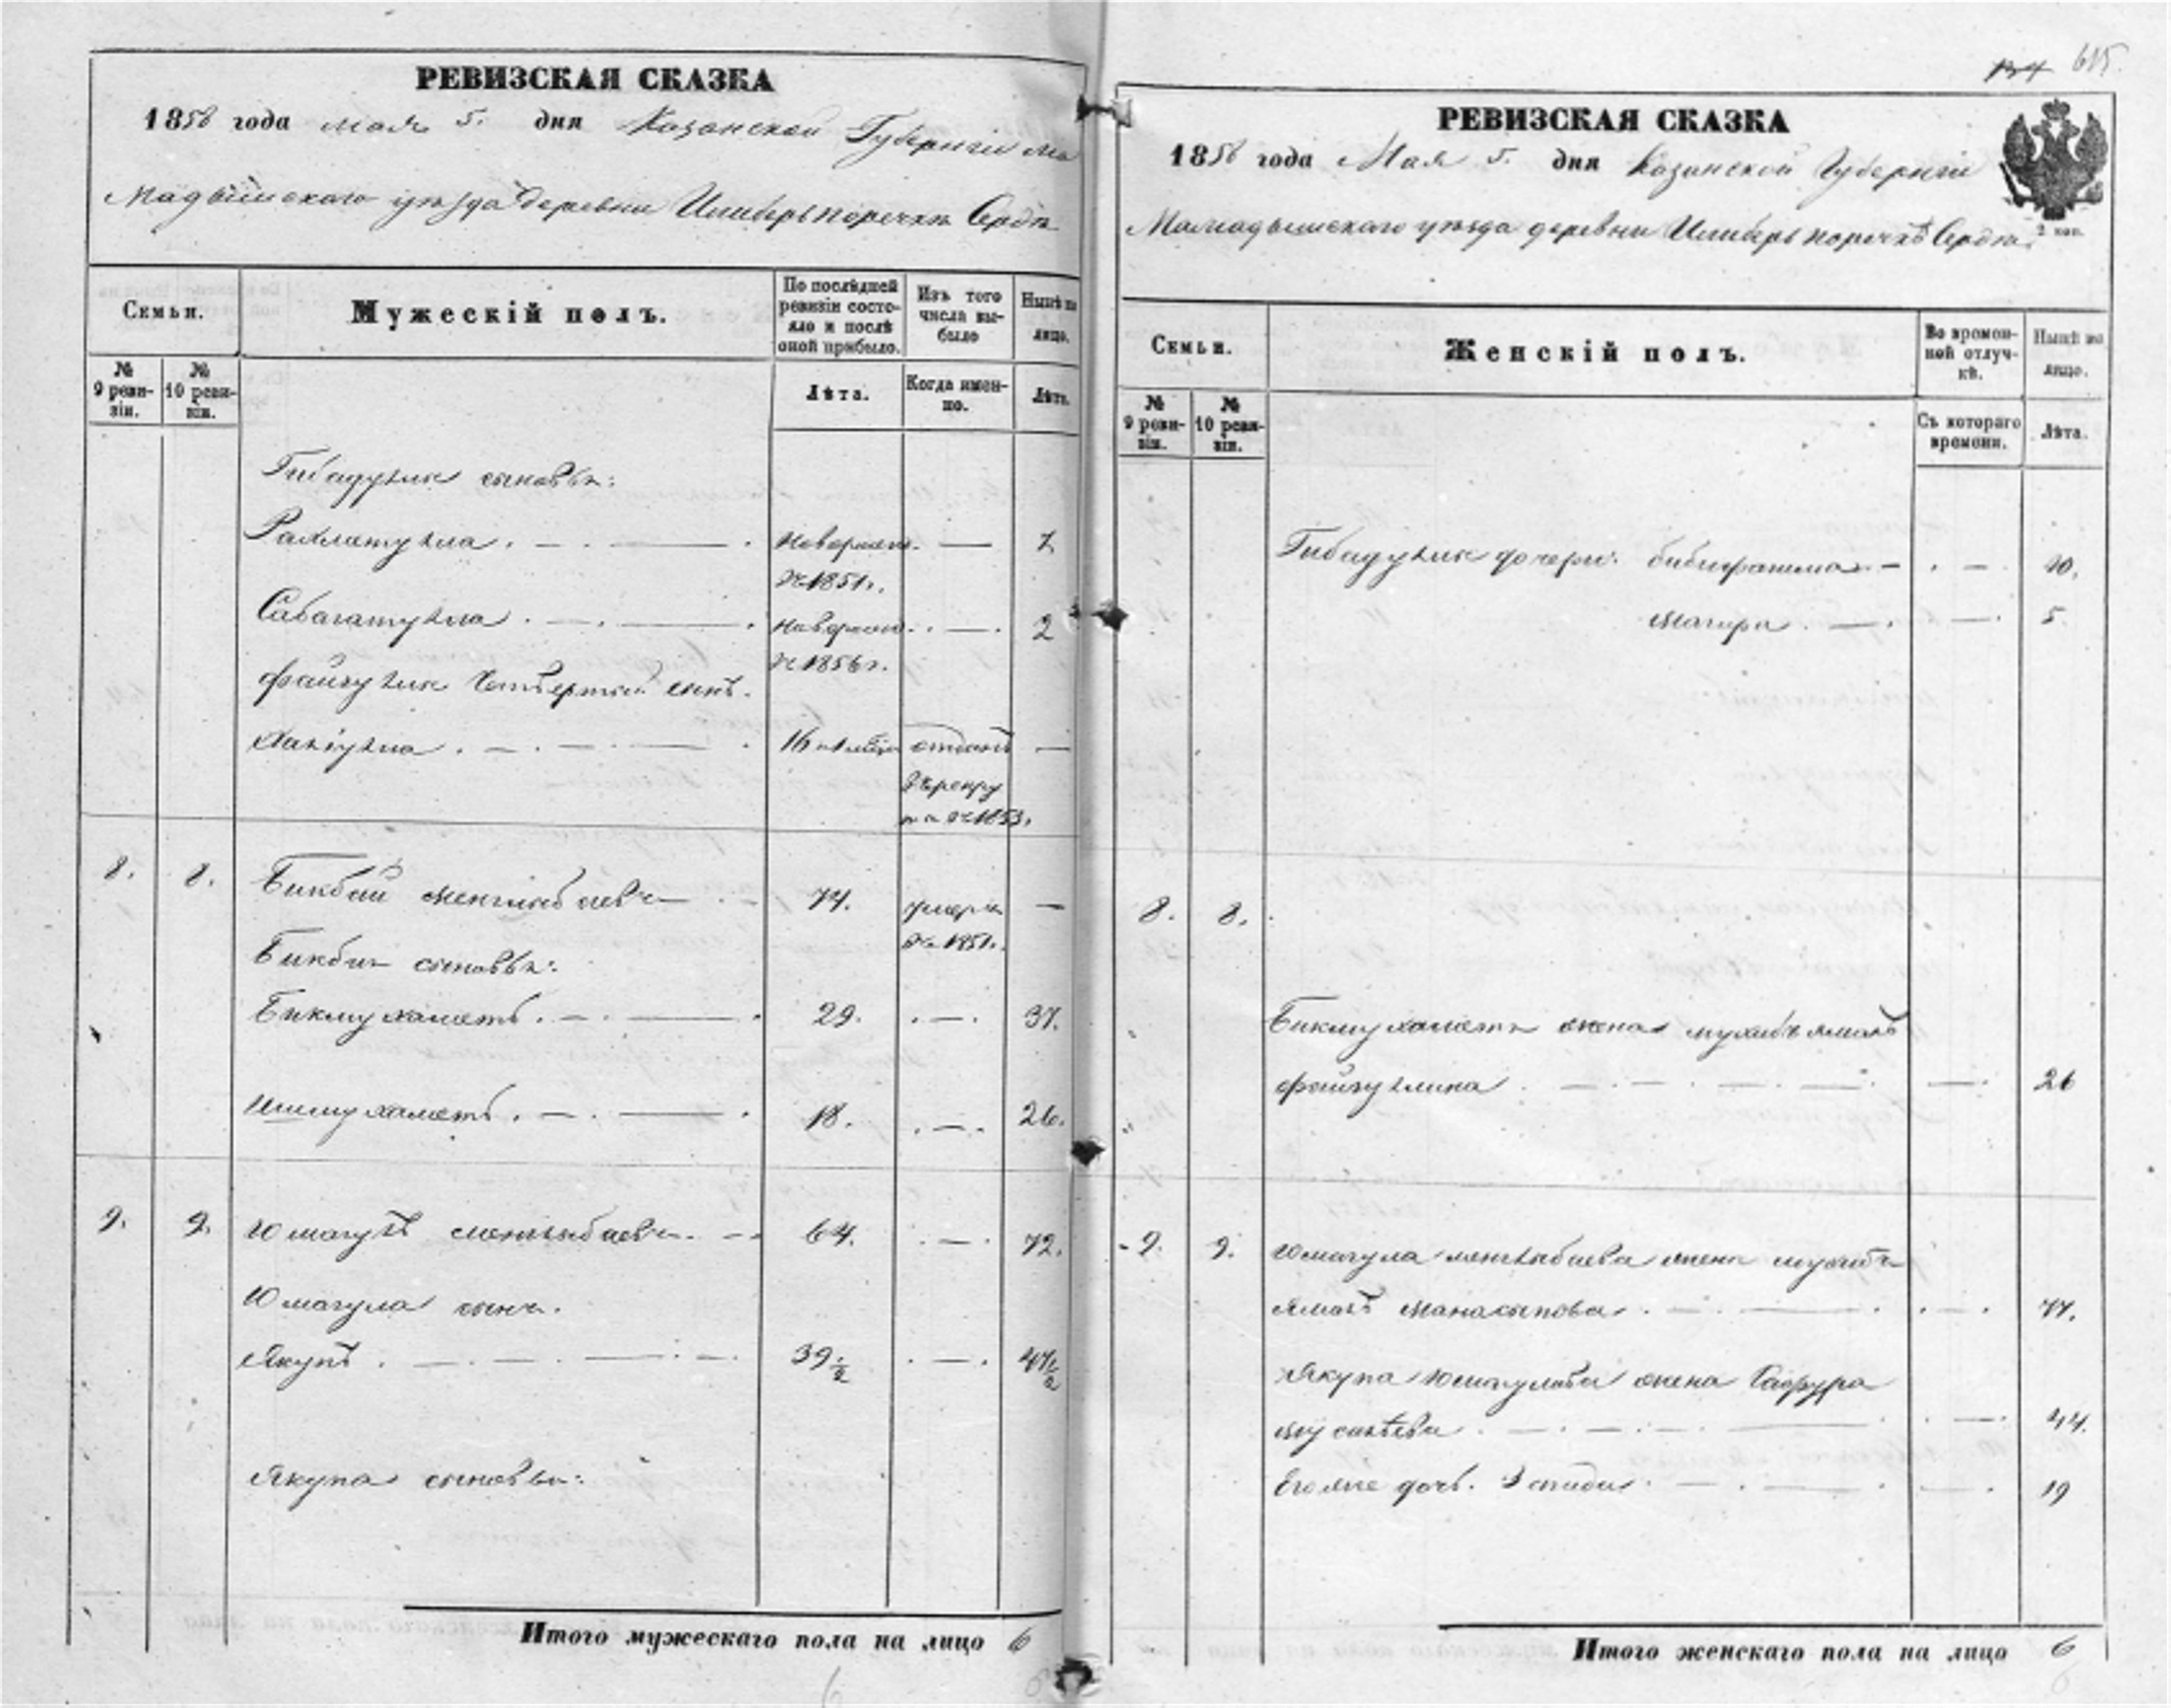 РЕВИЗСКАЯ СКАЗКА
1858 года мая 5. дня Казанской Губернiи Ма
Мадышскаго уѣзда деревни Ишиберь поречкѣ Ордѣ
Семьи.
Мужескiй полъ.
По послѣдней ревизiи состояло и послѣ оной прибыло.
Изъ того числа выбыло
Нынѣ на лицо.
№ 9 ревизiи.
№ 10 ревизiи.
Лѣта.
Когда именно.
Лѣта.
Гибадуллы сыновья:
Рахматулла. новорожд. — 7
съ 1851 г.
Сабагатулла. новорожд. — 2
съ 1856 г.
файзуллы четвертый сынъ.
Халiулла. 16 отданъ —
въ рекру
ты съ 1853.
8. 8. Бикбай Менглыбаевъ 74. умеръ —
въ 1851.
Бикбая сыновья:
Бикмухаметъ. 29. — 37.
Ишмухаметъ. 18. — 26.
9. 9. Юмагулъ менглыбаевъ. 64. — 72.
Юмагула сынъ.
Якупъ. 39½ — 47½
Якупа сыновья:
Итого мужескаго пола на лицо 6
615
РЕВИЗСКАЯ СКАЗКА
1858 года Мая 5. дня Казанской Губернiи
Мамадышскаго уѣзда деревни Ишиберь поречкѣ Ордѣ.
2 коп.
Семьи.
Женскiй полъ.
Во временной отлучкѣ.
Нынѣ на лицо.
№ 9 ревизiи.
№ 10 ревизiи.
Съ котораго времени.
Лѣта.
Гибадуллы дочери: бибифатима — 10.
Магира. — 5
8. 8.
Бикмухамета жена мухибъямалъ
файзуллина — 26
9. 9. Юмагула менглыбаева жена мухибъ
ямалъ Манасыпова. — 77.
Якупа Юмагулова жена Гафура
Мусаѣва — 44.
Его же дочь. — 19
Итого женскаго пола на лицо 6